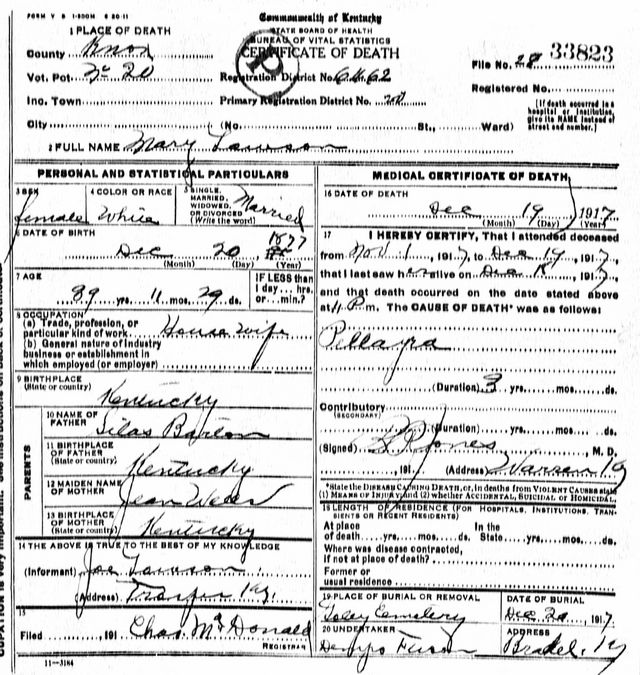 FORM V S 1-500M 8-20-11
Commonwealth of Kentucky
STATE BOARD OF HEALTH
BUREAU OF VITAL STATISTICS
CERTIFICATE OF DEATH
1 PLACE OF DEATH
County Knox
Vot. Pct. No 20
Inc. Town
City (No. St., Ward)
Registration District No.
Primary Registration District No.
File No. 28 33823
Registered No.
[If death occurred in a hospital or institution, give its NAME instead of street and number.]
2 FULL NAME Mary Lawson
PERSONAL AND STATISTICAL PARTICULARS
3 SEX female
4 COLOR OR RACE White
5 SINGLE, MARRIED, WIDOWED, OR DIVORCED (Write the word) Married
6 DATE OF BIRTH
Dec 20 1877
(Month) (Day) (Year)
7 AGE
39 yrs. 11 mos. 29 ds.
IF LESS than 1 day.... hrs. or.... min.?
8 OCCUPATION
(a) Trade, profession, or particular kind of work House wife
(b) General nature of industry business or establishment in which employed (or employer)
9 BIRTHPLACE (State or country) Kentucky
PARENTS
10 NAME OF FATHER Silas
11 BIRTHPLACE OF FATHER (State or country) Kentucky
12 MAIDEN NAME OF MOTHER Jean
13 BIRTHPLACE OF MOTHER (State or country) Kentucky
14 THE ABOVE IS TRUE TO THE BEST OF MY KNOWLEDGE
(Informant) Joe Lawson
(Address) Ky.
15
Filed 191 Chas McDonald
REGISTRAR
11-3184
MEDICAL CERTIFICATE OF DEATH
16 DATE OF DEATH
Dec 19 1917
(Month) (Day) (Year)
17 I HEREBY CERTIFY, That I attended deceased
from Nov 1, 1917, to Dec 19, 1917,
that I last saw her alive on Dec 18, 1917
and that death occurred on the date stated above
at 11 P.m. The CAUSE OF DEATH* was as follows:
Pellagra
(Duration) 3 yrs. mos. ds.
Contributory (SECONDARY)
(Duration) yrs. mos. ds.
(Signed) Jones, M. D.
, 191 (Address) Ky
*State the DISEASE CAUSING DEATH, or, in deaths from VIOLENT CAUSES state (1) MEANS OF INJURY; and (2) whether ACCIDENTAL, SUICIDAL or HOMICIDAL.
18 LENGTH OF RESIDENCE (FOR HOSPITALS, INSTITUTIONS, TRANSIENTS OR RECENT RESIDENTS)
At place of death yrs. mos. ds. In the State yrs. mos. ds.
Where was disease contracted, if not at place of death?
Former or usual residence
19 PLACE OF BURIAL OR REMOVAL Cemetery
DATE OF BURIAL Dec 20 1917
20 UNDERTAKER
ADDRESS Ky